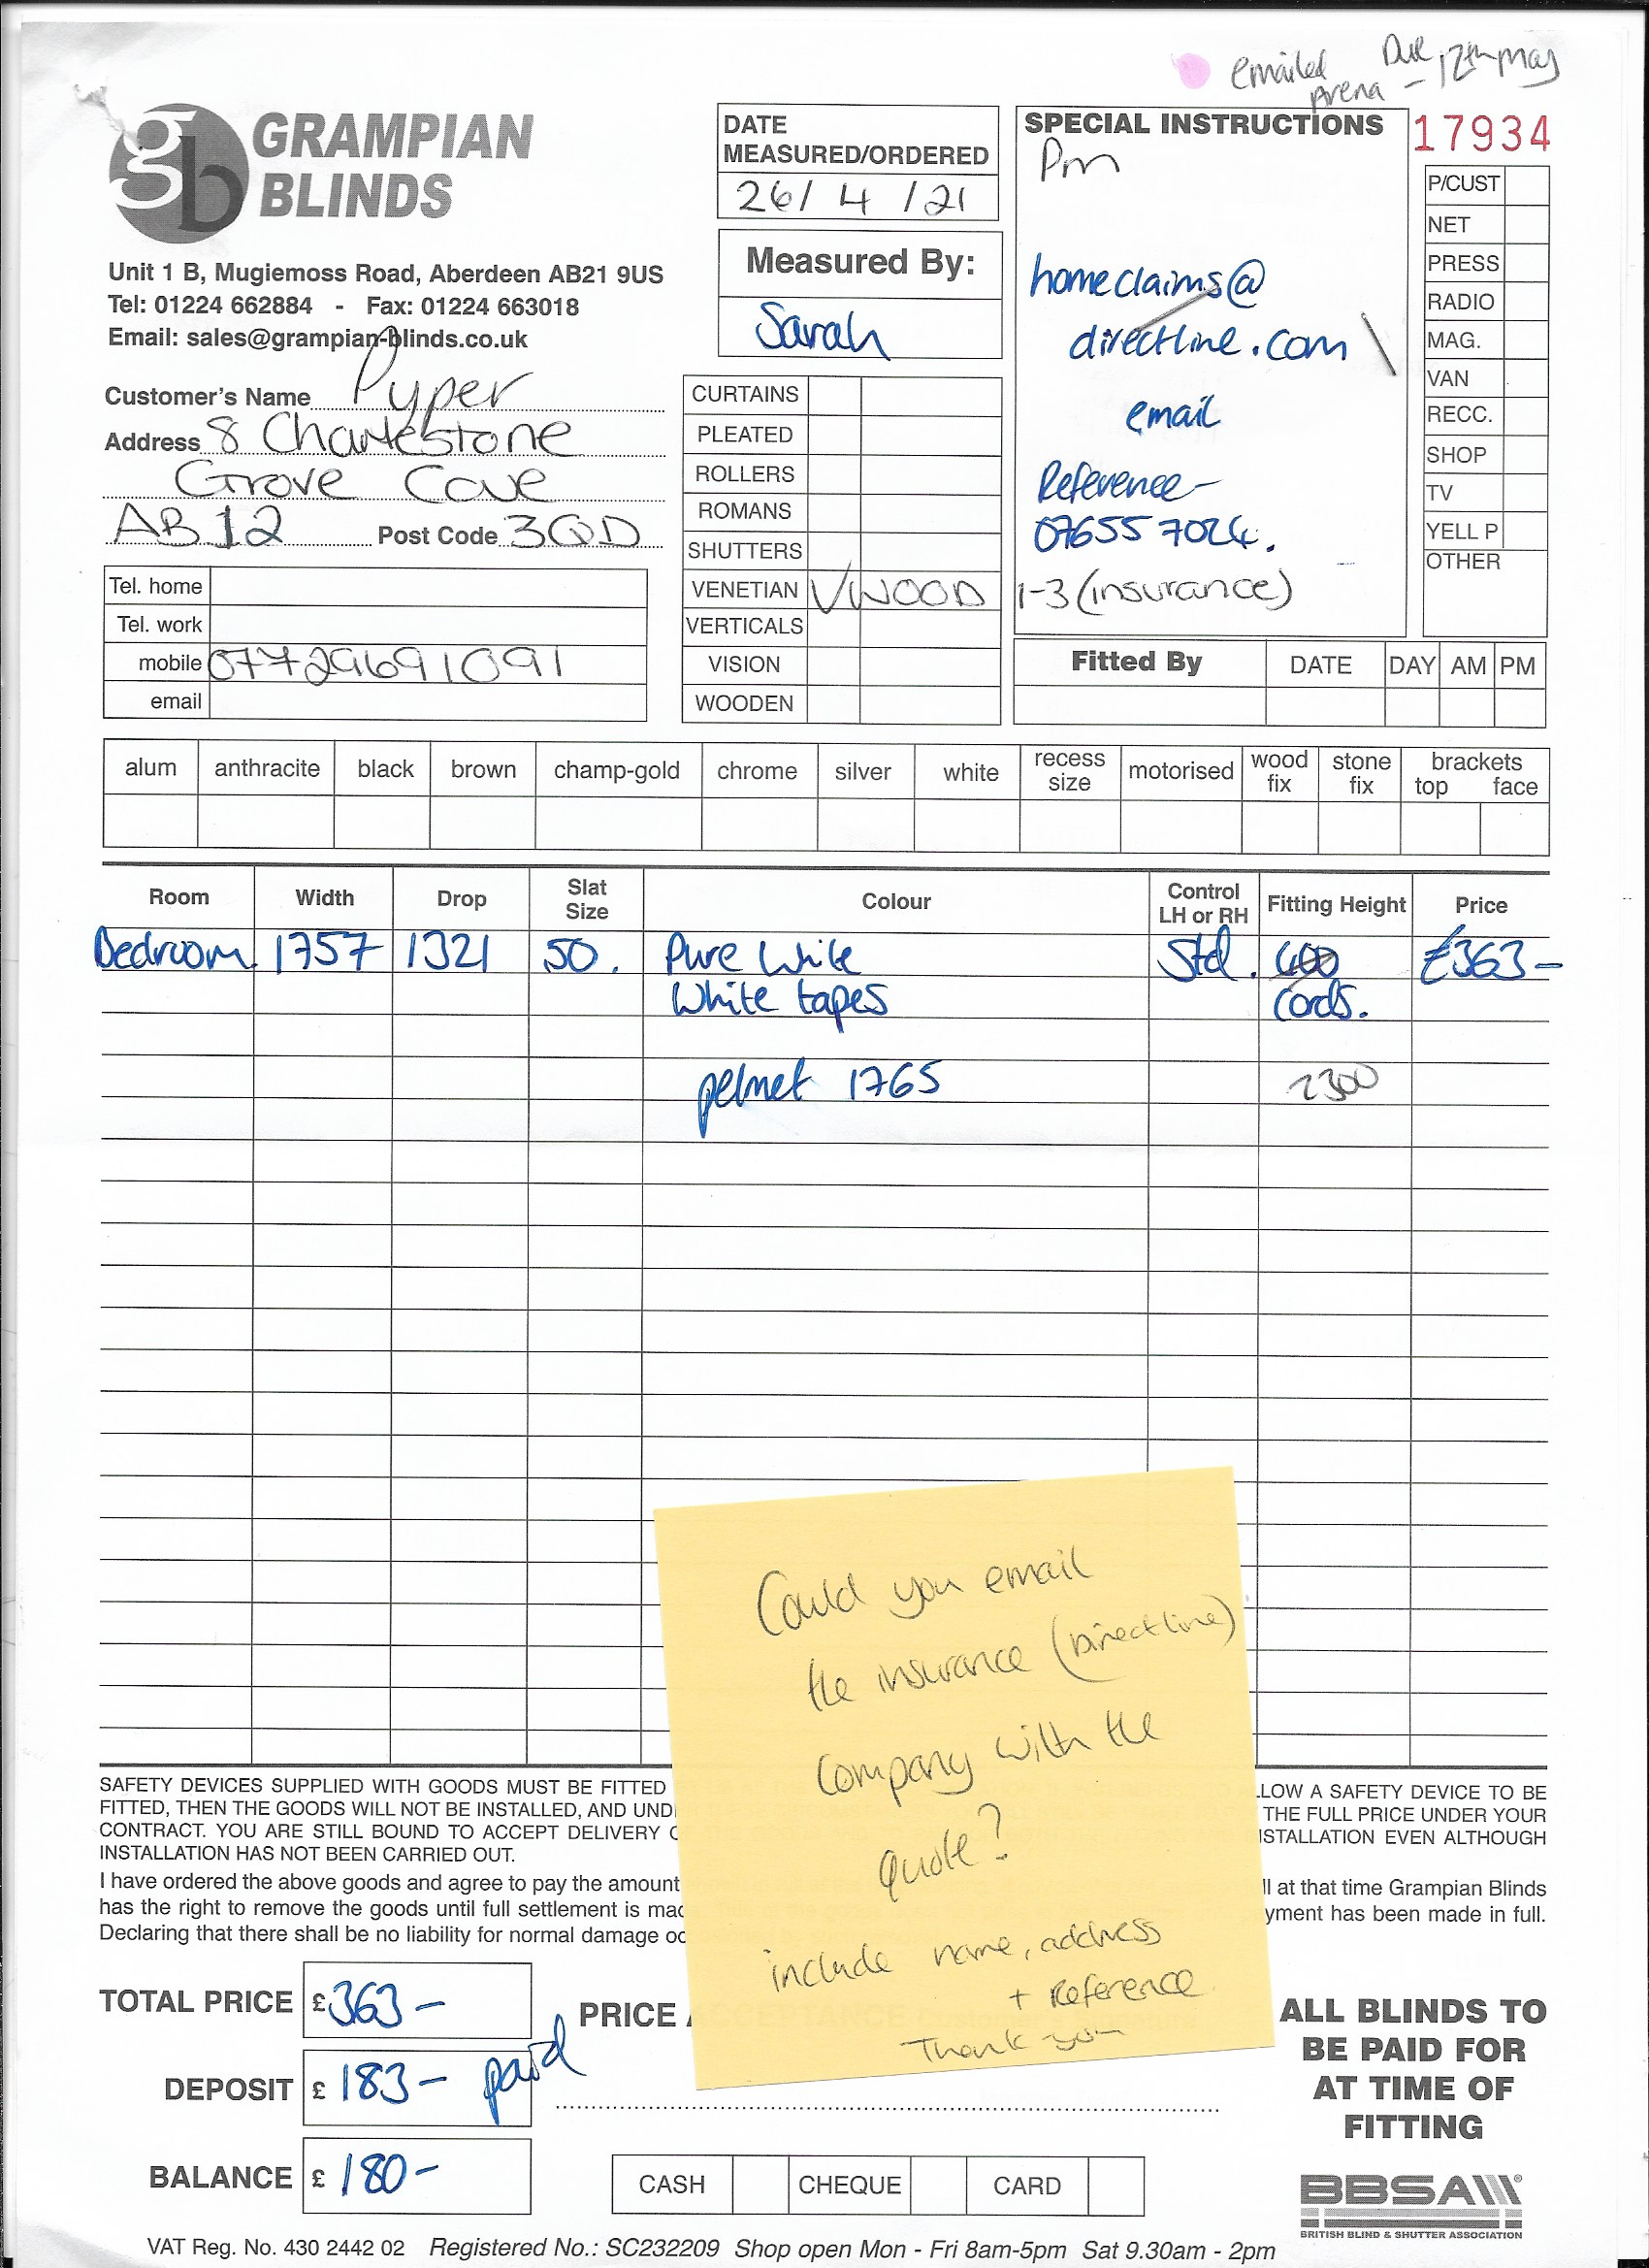 emailed Due 12th May
Arena –
GRAMPIAN
BLINDS
Unit 1 B, Mugiemoss Road, Aberdeen AB21 9US
Tel: 01224 662884 - Fax: 01224 663018
Email: sales@grampian-blinds.co.uk
DATE
MEASURED/ORDERED
26/ 4 /21
Measured By:
Sarah
SPECIAL INSTRUCTIONS
Pm
homeclaims@
directline.com
email
Reference -
076557024.
1-3 (insurance)
17934
P/CUST
NET
PRESS
RADIO
MAG.
VAN
RECC.
SHOP
TV
YELL P
OTHER
Customer's Name Pyper
Address 8 Charlestone
Grove Cove
AB12 Post Code 3QD
Tel. home
Tel. work
mobile 07729691091
email
CURTAINS
PLEATED
ROLLERS
ROMANS
SHUTTERS
VENETIAN ✓ WOOD
VERTICALS
VISION
WOODEN
Fitted By DATE DAY AM PM
alum anthracite black brown champ-gold chrome silver white recess size motorised wood fix stone fix brackets top face
Room Width Drop Slat Size Colour Control LH or RH Fitting Height Price
Bedroom 1757 1321 50. Pure White Std. 400 £363-
White tapes cords.
pelmet 1765 2300
Could you email
the insurance (Directline)
company with the
quote?
include name, address
+ Reference
Thank you
SAFETY DEVICES SUPPLIED WITH GOODS MUST BE FITTED LOW A SAFETY DEVICE TO BE
FITTED, THEN THE GOODS WILL NOT BE INSTALLED, AND UND THE FULL PRICE UNDER YOUR
CONTRACT. YOU ARE STILL BOUND TO ACCEPT DELIVERY STALLATION EVEN ALTHOUGH
INSTALLATION HAS NOT BEEN CARRIED OUT.
I have ordered the above goods and agree to pay the amount ll at that time Grampian Blinds
has the right to remove the goods until full settlement is mad yment has been made in full.
Declaring that there shall be no liability for normal damage oc
TOTAL PRICE £363-
PRICE ACCEPTANCE
DEPOSIT £ 183- paid
BALANCE £ 180-
CASH CHEQUE CARD
ALL BLINDS TO
BE PAID FOR
AT TIME OF
FITTING
BBSA
BRITISH BLIND & SHUTTER ASSOCIATION
VAT Reg. No. 430 2442 02 Registered No.: SC232209 Shop open Mon - Fri 8am-5pm Sat 9.30am - 2pm